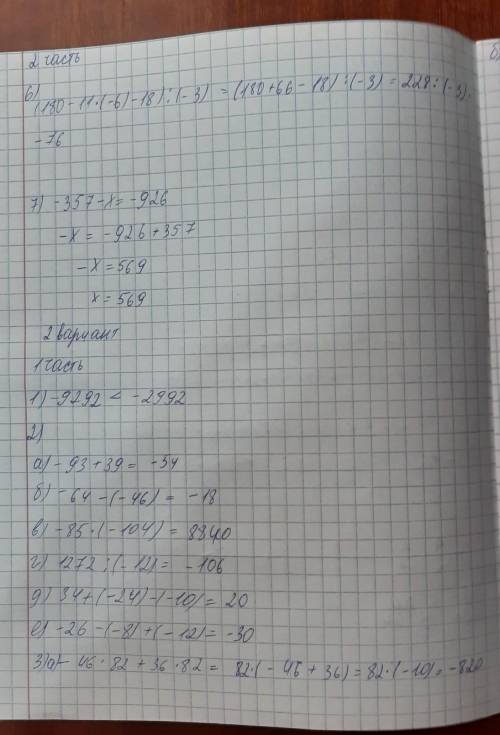 2 часть
6) (180-11·(-6)-18):(-3) = (180+66-18):(-3) = 228:(-3)=
-76
7) -357-x=-926
-x = -926+357
-x=569
x=569
2 вариант
1 часть
1) -9292 < -2992
2)
а) -93+39= -54
б) -64-(-46)= -18
в) -85·(-104)= 8840
г) 1272:(-12)= -106
д) 34+(-24)-(-10)= 20
е) -26-(-8)+(-12)= -30
3)а) -46·82+36·82= 82·(-46+36)=82·(-10)=-820
б)